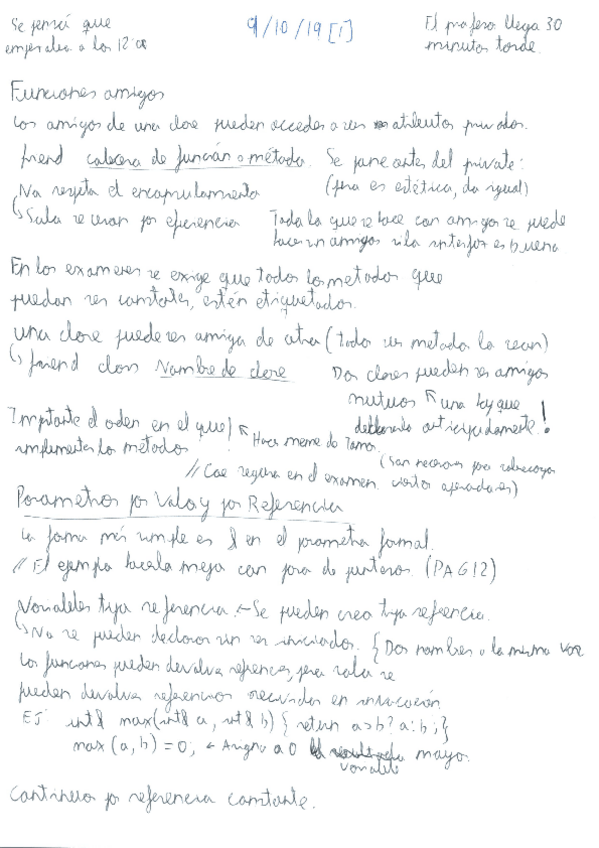 Se pensó que
empezaba a las 12:00
9/10/19 [1]
El profesor llega 30
minutos tarde.
Funciones amigas
Los amigos de una clase pueden acceder a sus atributos privados.
friend cabecera de función o método. Se pone antes del private:
(pero es estética, da igual)
No respeta el encapsulamiento
Solo se usan por eficiencia
Todo lo que se hace con amigos se puede
hacer sin amigos si la interfaz es buena
En los exámenes se exige que todos los metodos que
puedan ser constantes, estén etiquetados.
una clase puede ser amiga de otra (todos sus metodos lo sean)
friend class Nombre de clase
Dos clases pueden ser amigas
mutuas una hay que
declararla anticipadamente!
Importante el orden en el que
implementas los métodos
Hacer meme de
(Son necesarios para sobrecargar
ciertos operadores)
// Cae seguro en el examen.
Parametros por Valor y por Referencia
La forma más simple es & en el parametro formal.
// El ejemplo hacerlo mejor con de punteros. (PAG12)
Variables tipo referencia. ← Se pueden crear tipo referencia.
No se pueden declarar sin ser iniciados. { Dos nombres a la misma var
Las funciones pueden devolver referencias, pero solo se
pueden devolver referencias recibidas en invocación
EJ int& max(int& a, int& b) { return a>b? a:b; }
max (a,b) = 0; ← Asigna a 0 mayor.
variable
Continuar por referencia constante.